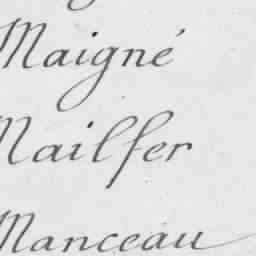 Maigné
Mailfer
Manceau